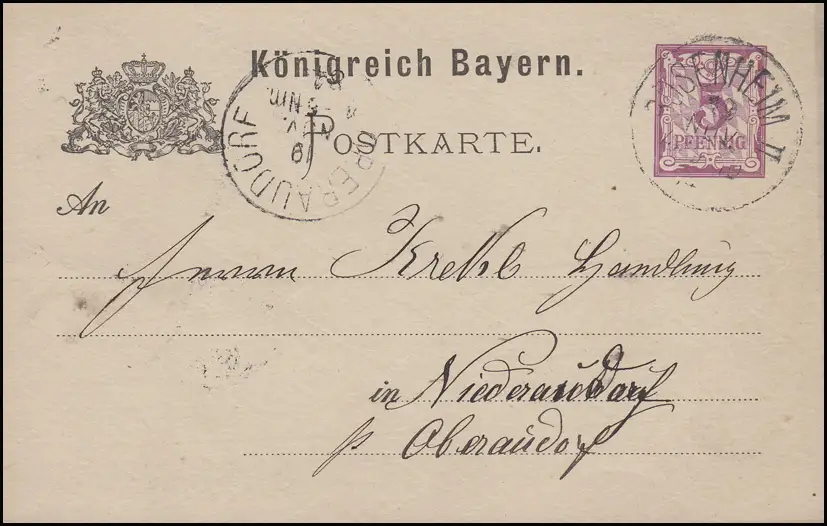 Königreich Bayern.
POSTKARTE.
5
PFENNIG
ROSENHEIM II
OBERAUDORF
An
Herrn Krehl Handlung
in Niederaudorf
p Oberaudorf